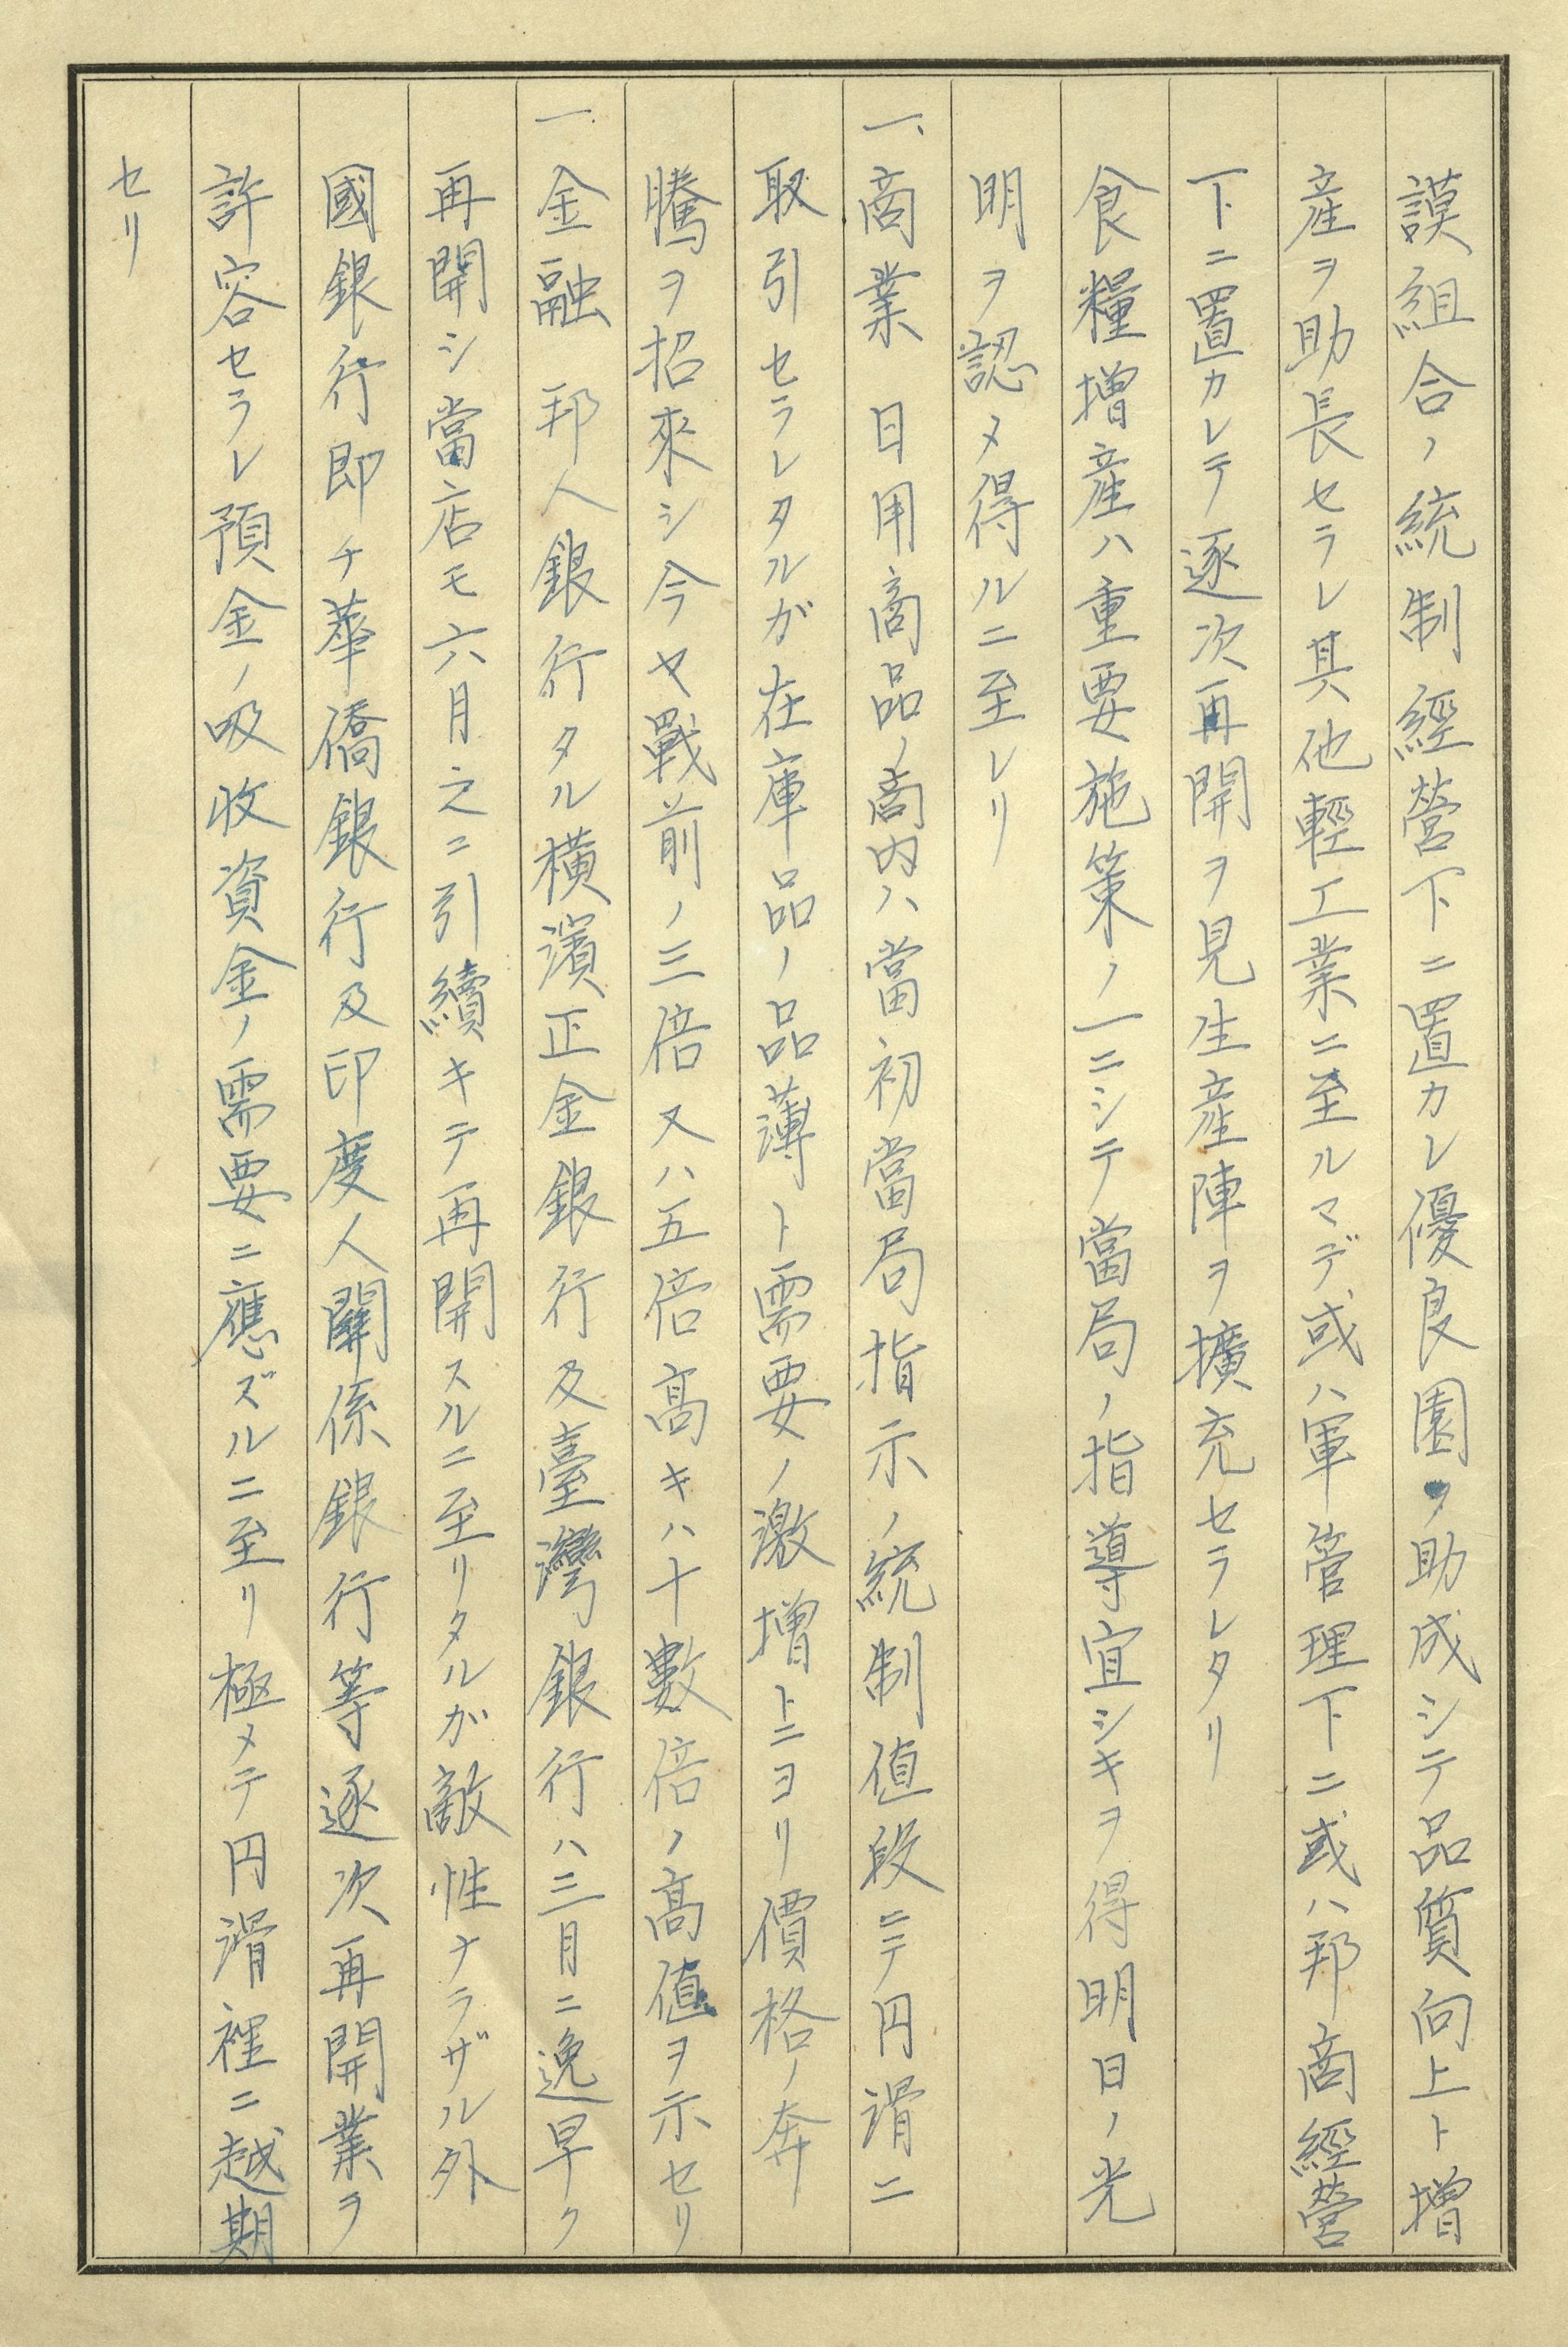 謨組合ノ統制經營下ニ置カレ優良園ヲ助成シテ品質向上ト增
産ヲ助長セラレ其他輕工業ニ至ルマデ或ハ軍管理下ニ或ハ邦商經營
下ニ置カレテ逐次再開ヲ見生産陣ヲ擴充セラレタリ
食糧增産ハ重要施策ノ一ニシテ當局ノ指導宜シキヲ得明日ノ光
明ヲ認メ得ルニ至レリ
一、商業 日用商品ノ商内ハ當初當局指示ノ統制値段ニテ円滑ニ
取引セラレタルガ在庫品ノ品薄ト需要ノ激增トニヨリ價格ノ奔
騰ヲ招來シ今ヤ戰前ノ三倍又ハ五倍高キハ十數倍ノ高値ヲ示セリ
一、金融 邦人銀行タル横濱正金銀行及臺灣銀行ハ三月ニ逸早ク
再開シ當店モ六月之ニ引續キテ再開スルニ至リタルガ敵性ナラザル外
國銀行即チ華僑銀行及印度人關係銀行等逐次再開業ヲ
許容セラレ預金ノ吸收資金ノ需要ニ應ズルニ至リ極メテ円滑裡ニ越期
セリ